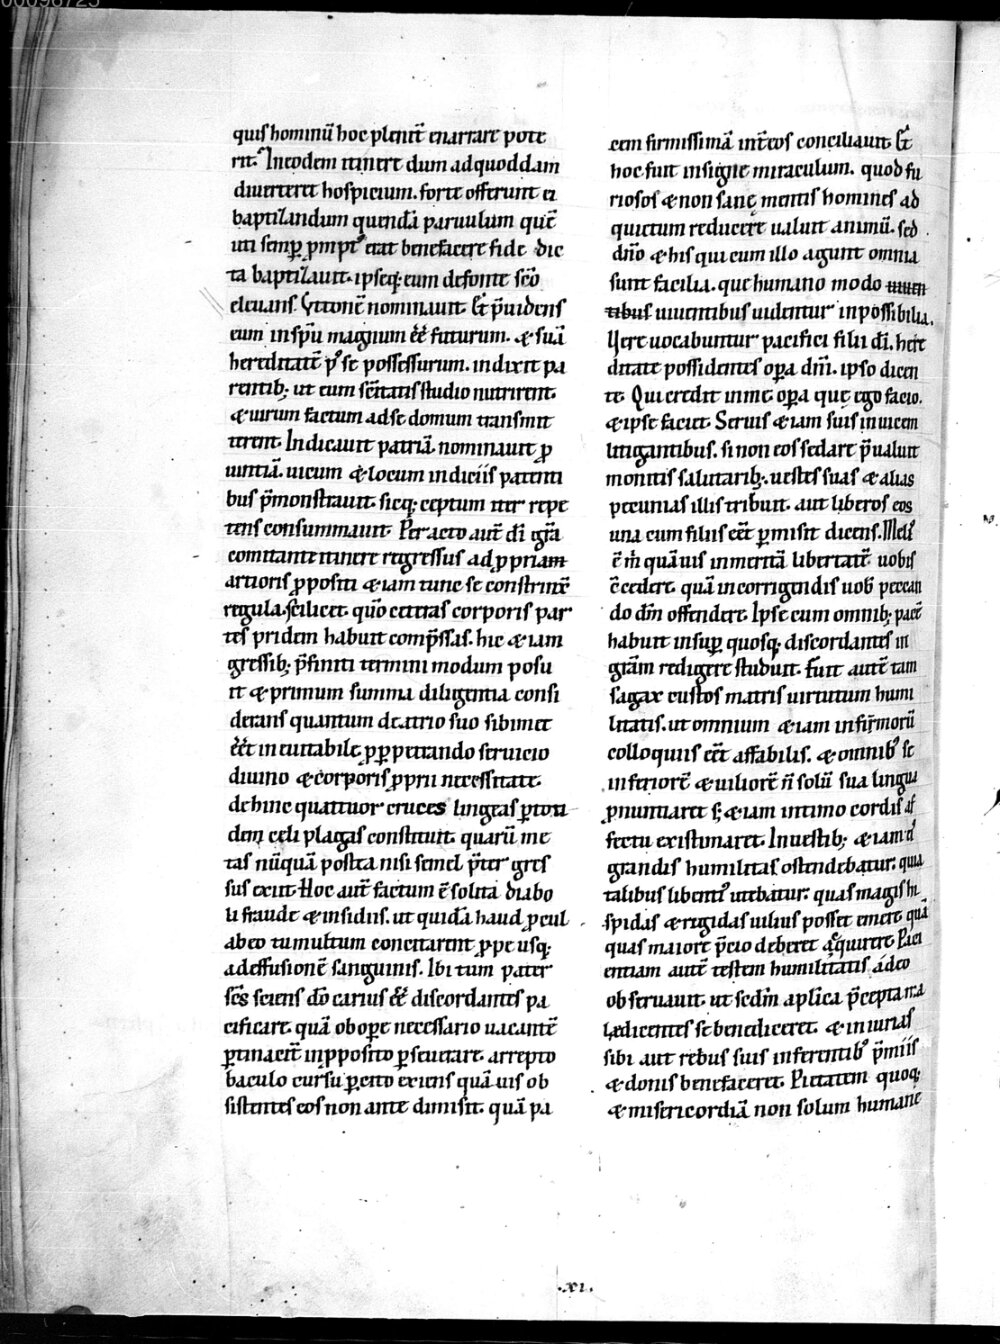 00098725
quis hominũ hoc pleniť enarrare pote
rit. In eodem itinere dum ad quoddam
diverteret hospicium. forte offerunt ei
baptizandum quendã paruulum quẽ
uti semp̱ ꝓmptꝰ erat benefacere fide dic
ta baptizauit. ipseq; eum de fonte scõ
eleuans. Vttonẽ nominauit. Et p̃uidens
eum in spũ magnum ẽẽ futurum. & suã
hereditatẽ pꝰ se possessurum. indixit pa
rentib; ut eum sẽitatis studio nutrirent.
& uirum factum ad se domum transmit
terent. Indicauit patriã. nominauit ꝓ
uintiã. uicum & locum indiciis patenti
bus p̃monstrauit. sicq; ceptum iter repe
tens consummauit. Peracto aut̃ dĩ gr̃a
comitante itinere regressus ad ꝓpriam
artioris ꝓpositi & iam tunc se constrinx̃
regula. scilicet. quõ ceteras corporis par
tes pridem habuit comp̃ssas. hic & iam
gressib; p̃finiti termini modum posu
it & primum summa diligentia consi
derans quantum de atrio suo sibimet
ẽẽt ineuitabile ꝓp̱petrando seruicio
diuino & corporis ꝓprii necessitate.
dehinc quattuor cruces ligneas p̱ toti
dem celi plagas constituit. quarũ me
tas nũquã postea nisi semel p̃ter gres
sus exiit. Hoc aut̃ factum ẽ solita diabo
li fraude & insidiis. ut quidã haud ꝓcul
ab eo tumultum concitarent ꝓpe usq;
ad effusionẽ sanguinis. Ibi tum pater
scs̃ sciens dõ carius ẽẽ discordantes pa
cificare. quã ob ope necessario uacantẽ
p̱tinaciť in ꝓposito p̱seuerare. arrepto
baculo cursu p̱cito exiens quãuis ob
sistentes eos non ante dimisit. quã pa
cem firmissimã int̃ eos conciliauit. Et
hoc fuit insigne miraculum. quod fu
riosos & non sanę mentis homines ad
quietum reducere ualuit animũ. sed
dño & his qui cum illo agunt omnia
sunt facilia. que humano modo
uiuentibus uidentur inpossibilia.
Here uocabuntur pacifici filii dĩ. here
ditate possidentes oꝑa dñi. ipso dicen
te. Qui credit in me. oꝑa que ego facio.
& ipse faciet. Seruis & iam suis inuicem
litigantibus. si non eos sedare p̃ualuit
monitis salutarib;. uestes suas & alias
pecunias illis tribuit. aut liberos eos
una cum filiis eẽt p̱misit dicens. Meliꝰ
ẽ m̃ quãuis inmeritã libertatẽ uobis
c̃cedere. quã in corrigendis uob peccan
do dm̃ offendere. Ipse cum omnib; pacẽ
habuit insup̱ quosq; discordantes in
gr̃am redigere studuit. Fuit autẽ tam
sagax custos matris uirtutum humi
litatis. ut omnium & iam infirmorũ
colloquiis eẽt affabilis. & omnibꝰ se
inferiorẽ & uiliorẽ ñ solũ sua lingua
ꝓnuntiaret s; & iam intimo cordis af
fectu existimaret. In uestib; & iam eiꝰ
grandis humilitas ostendebatur. quia
talibus libentiꝰ utebatur. quas magis hi
spidas & rigidas uilius posset emere quã
quas maiore p̃cio deberet acquirere. Paci
entiam autẽ testem humilitatis adeo
obseruauit. ut sedm̃ aplica p̃cepta ma
ledicentes se benediceret. & iniurias
sibi aut rebus suis inferentibꝰ p̃miis
& donis benefaceret. Pietatem quoq;
& misericordiã non solum humane
.xi.